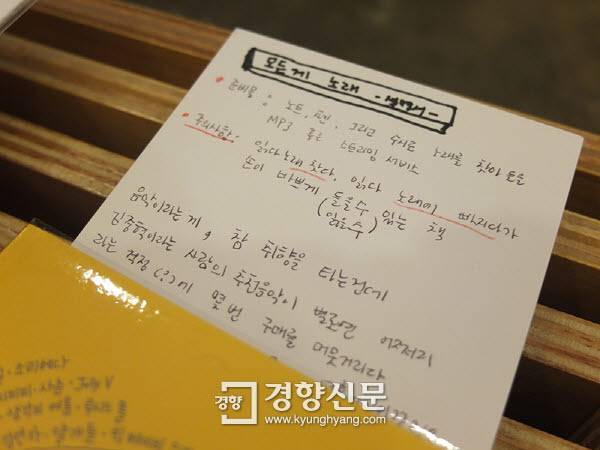 모든게 노래 -설명서-
• 준비물 : 노트, 펜, 그리고 수시로 노래를 찾아 들을
MP3 혹은 스트리밍 서비스
• 주의사항. 읽다 노래 찾다, 읽다 노래에 빠지다가
손이 바쁘게 (들을수 / 읽을수) 있는 책
음악이라는게, 참 취향을 타는건데
김중혁이라는 사람의 추천음악이 별로면 어쩌지
라는 걱정(?)에 몇번 구매를 머뭇거리다
경향 경향신문
www.kyunghyang.com